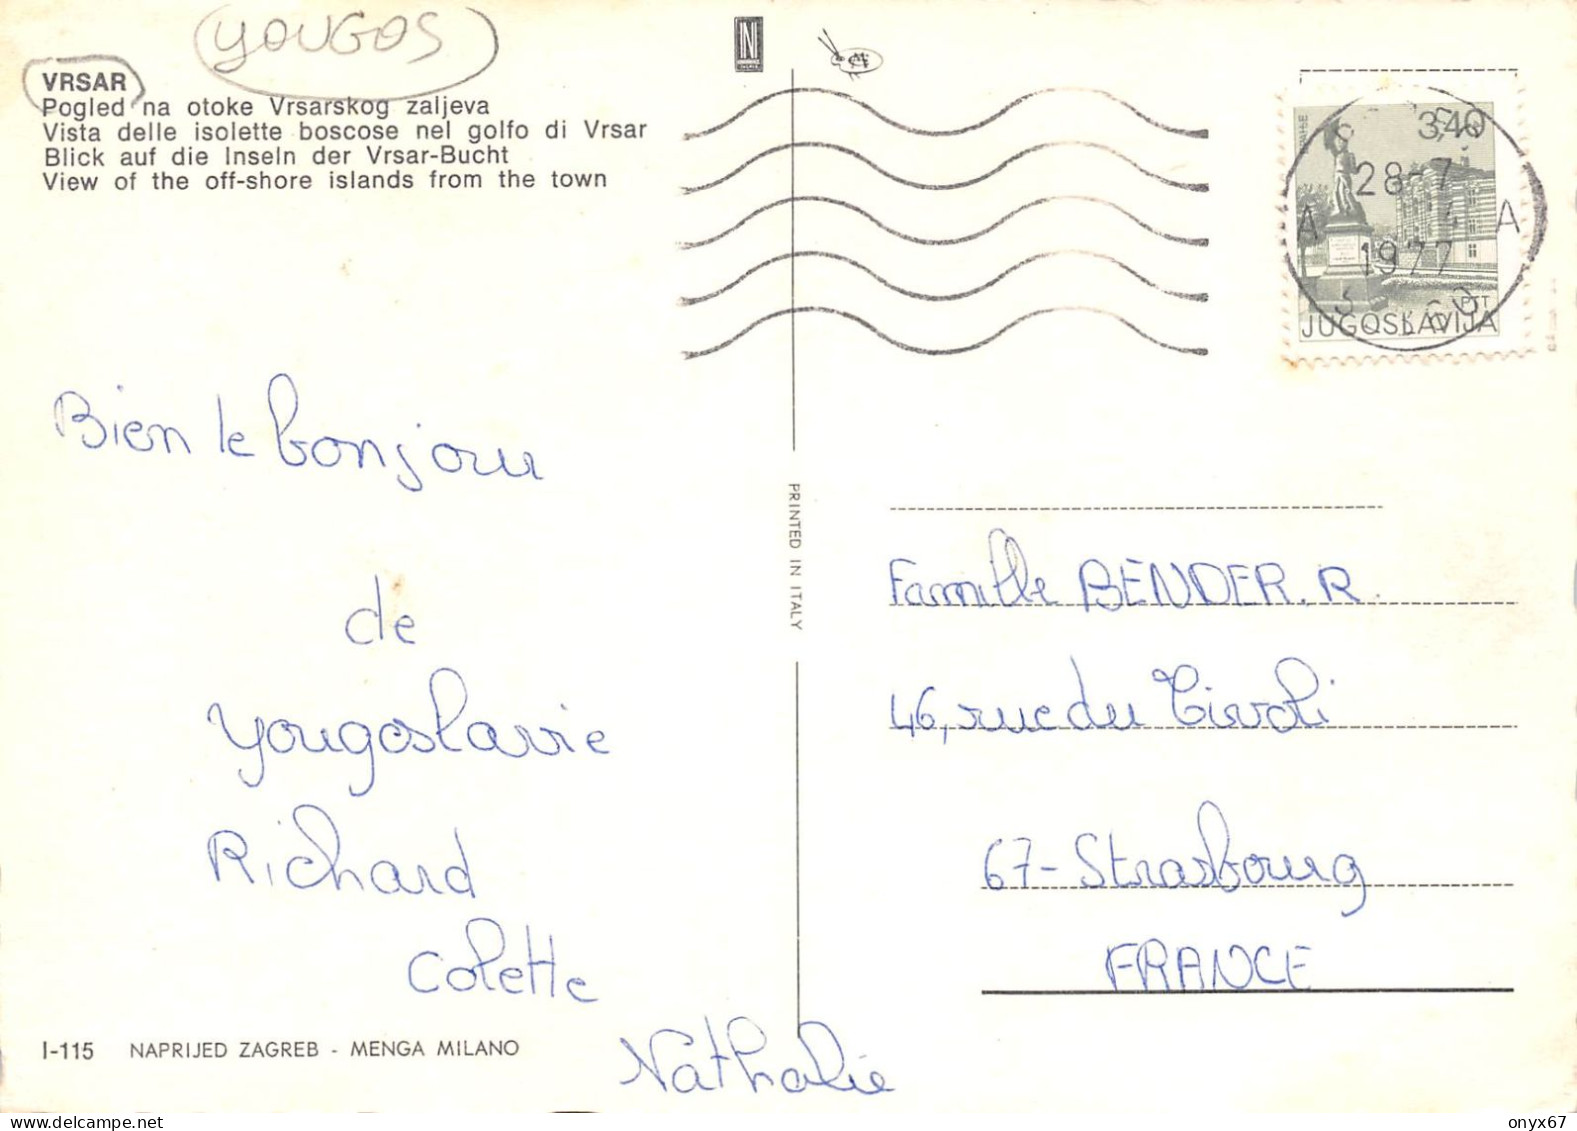 YOUGOS
VRSAR
Pogled na otoke Vrsarskog zaljeva
Vista delle isolette boscose nel golfo di Vrsar
Blick auf die Inseln der Vrsar-Bucht
View of the off-shore islands from the town
3,40
28-7
A A
1977
PTT
JUGOSLAVIJA
Bien le bonjour
de
Yougoslavie
Richard
Colette
Nathalie
PRINTED IN ITALY
Famille BENDER. R.
46, rue du Tivoli
67- Strasbourg
FRANCE
I-115 NAPRIJED ZAGREB - MENGA MILANO
onyx67